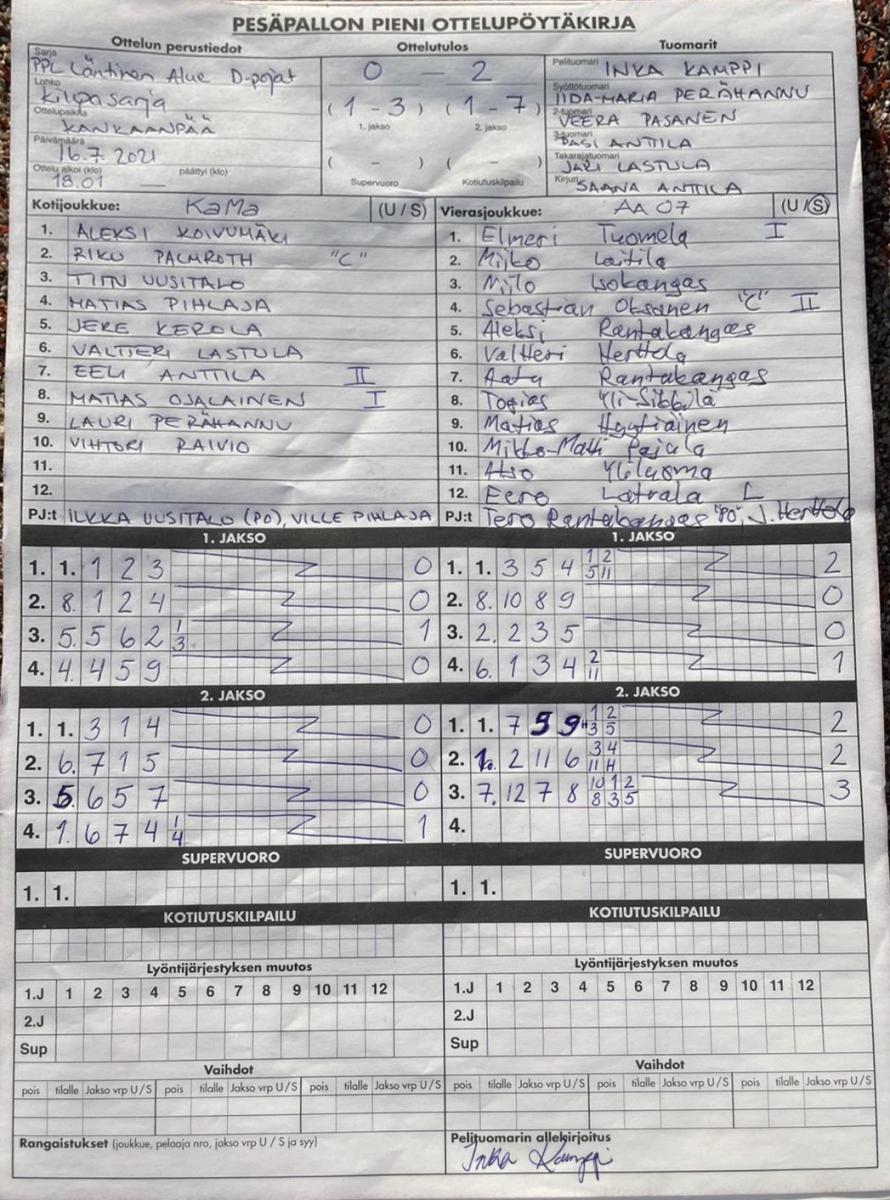 PESÄPALLON PIENI OTTELUPÖYTÄKIRJA
Ottelun perustiedot Ottelutulos Tuomarit
Sarja PPL Läntinen Alue D-pojat
Lohko Kilpasarja
Ottelupaikka KANKAANPÄÄ
Päivämäärä 16.7.2021
Ottelu alkoi (klo) 18.01 päättyi (klo)
0 – 2
(1 - 3) (1 - 7)
1. jakso 2. jakso
( - ) ( - )
Supervuoro Kotiutuskilpailu
Pelituomari INKA KAMPPI
Syöttötuomari IIDA-MARIA PERÄHANNU
2-tuomari VEERA PASANEN
3-tuomari PASI ANTTILA
Takarajatuomari JARI LASTULA
Kirjuri SAANA ANTTILA
Kotijoukkue: KaMa (U / S)
1. ALEKSI KOIVUMÄKI
2. RIKU PALMROTH "C"
3. TIITU UUSITALO
4. MATIAS PIHLAJA
5. JERE KEROLA
6. VALTTERI LASTULA
7. EELI ANTTILA II
8. MATIAS OJALAINEN I
9. LAURI PERÄHANNU
10. VIHTORI RAIVIO
11.
12.
PJ:t ILKKA UUSITALO (PO), VILLE PIHLAJA
Vierasjoukkue: AA 07 (U / S)
1. Elmeri Tuomela I
2. Miiko Laitila
3. Milo Isokangas
4. Sebastian Oksanen "C" II
5. Aleksi Rantakangas
6. Valtteri Herttola
7. Aatu Rantakangas
8. Topias Yli-Sikkilä
9. Matias Hyytiäinen
10. Mikko-Matti Pajula
11. Atso Yliluoma
12. Eero Latvala L
PJ:t Tero Rantakangas "PO", J. Herttola
1. JAKSO
1. 1. 1 2 3 0
2. 8. 1 2 4 0
3. 5. 5 6 2 1 3 1
4. 4. 4 5 9 0
2. JAKSO
1. 1. 3 1 4 0
2. 6. 7 1 5 0
3. 5. 6 5 7 0
4. 1. 6 7 4 1 4 1
SUPERVUORO
1. 1.
KOTIUTUSKILPAILU
Lyöntijärjestyksen muutos
1.J 1 2 3 4 5 6 7 8 9 10 11 12
2.J
Sup
Vaihdot
pois tilalle Jakso vrp U / S pois tilalle Jakso vrp U / S pois tilalle Jakso vrp U / S
Rangaistukset (joukkue, pelaaja nro, jakso vrp U / S ja syy)
1. JAKSO
1. 1. 3 5 4 1 2 5 11 2
2. 8. 10 8 9 0
3. 2. 2 3 5 0
4. 6. 1 3 4 2 11 1
2. JAKSO
1. 1. 7 5 9 1 2 3 5 2
2. 1. 2 11 6 3 4 11 H 2
3. 7. 12 7 8 10 1 2 8 3 5 3
4.
SUPERVUORO
1. 1.
KOTIUTUSKILPAILU
Lyöntijärjestyksen muutos
1.J 1 2 3 4 5 6 7 8 9 10 11 12
2.J
Sup
Vaihdot
pois tilalle Jakso vrp U / S pois tilalle Jakso vrp U / S pois tilalle Jakso vrp U / S
Pelituomarin allekirjoitus
Inka Kamppi